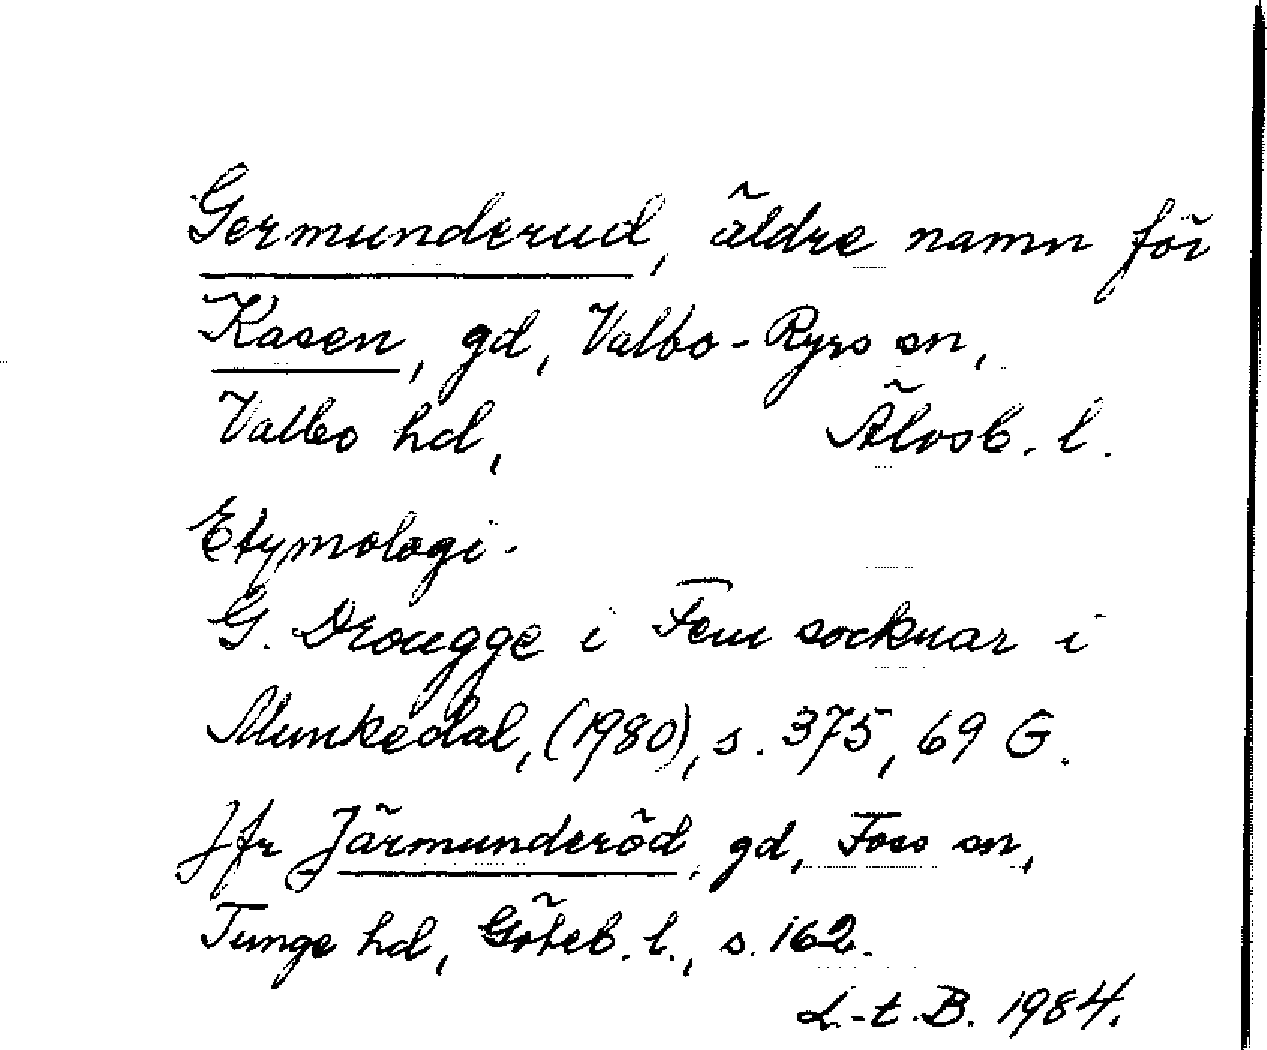 Germunderud, äldre namn för
Kasen, gd, Valbo-Ryrs sn,
Valbo hd, Älvsb. l.
Etymologi.
G. Drougge i Fem socknar i
Munkedal, (1980), s. 375, 69 G.
Jfr Järmunderöd, gd, Foss sn,
Tunge hd, Göteb. l., s. 162.
L-t B. 1984.